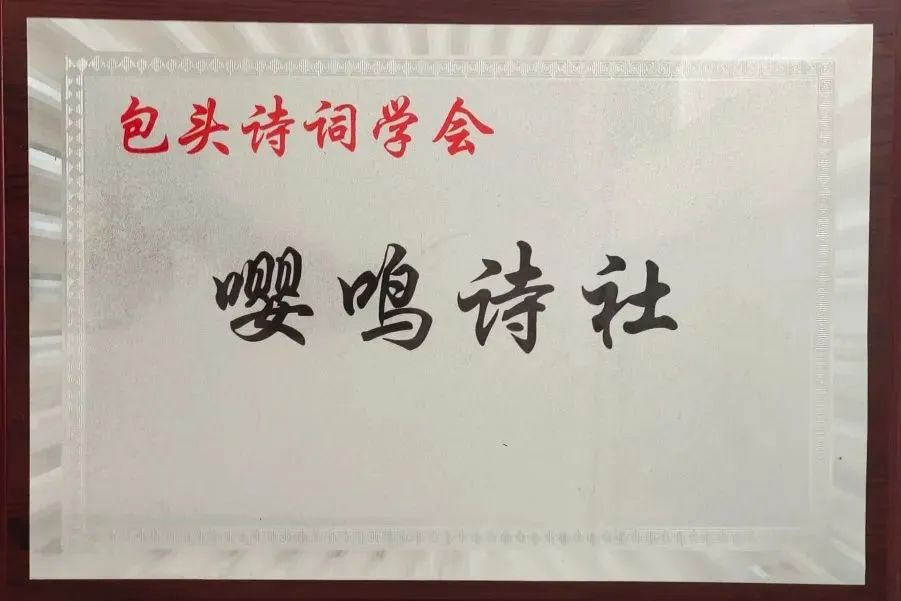 包头诗词学会
嘤鸣诗社